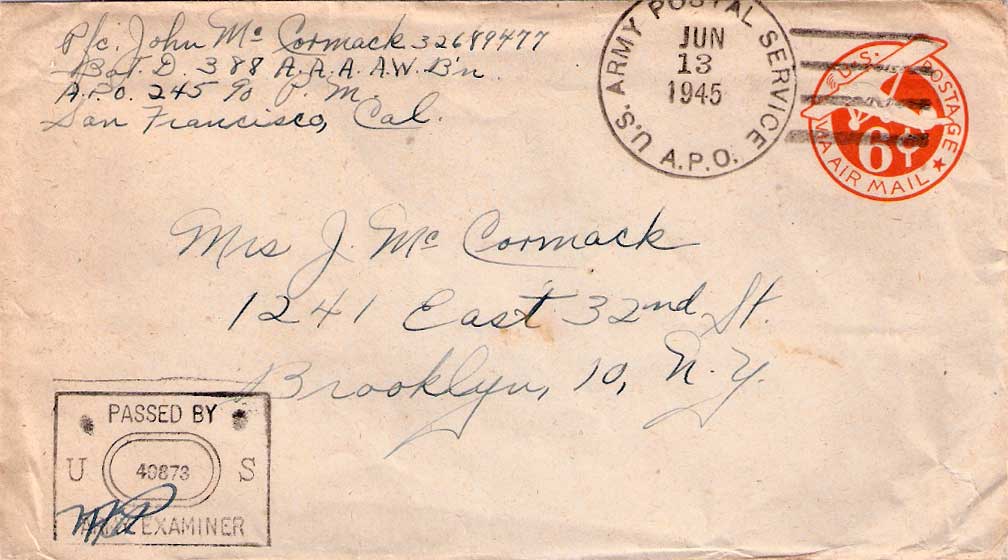 Pfc. John Mc Cormack 32689477
Bat. D. 388 A.A.A. A.W. B'n
A.P.O. 245 c/o P.M.
San Francisco, Cal.
U.S. ARMY POSTAL SERVICE
JUN
13
1945
A.P.O.
U.S. POSTAGE
6¢
VIA AIR MAIL
Mrs J. Mc Cormack
1241 East 32nd St.
Brooklyn, 10, N.Y.
PASSED BY
U 49873 S
ARMY EXAMINER